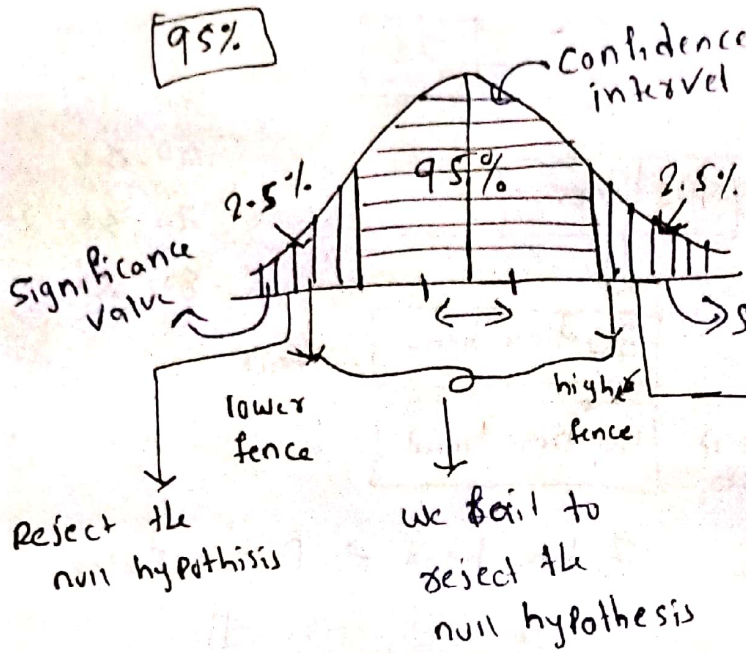 95%
Confidence
intervel
95%
2.5%
2.5%
Significance
value
S
lower
fence
higher
fence
Reject the
null hypothisis
we fail to
reject the
null hypothesis